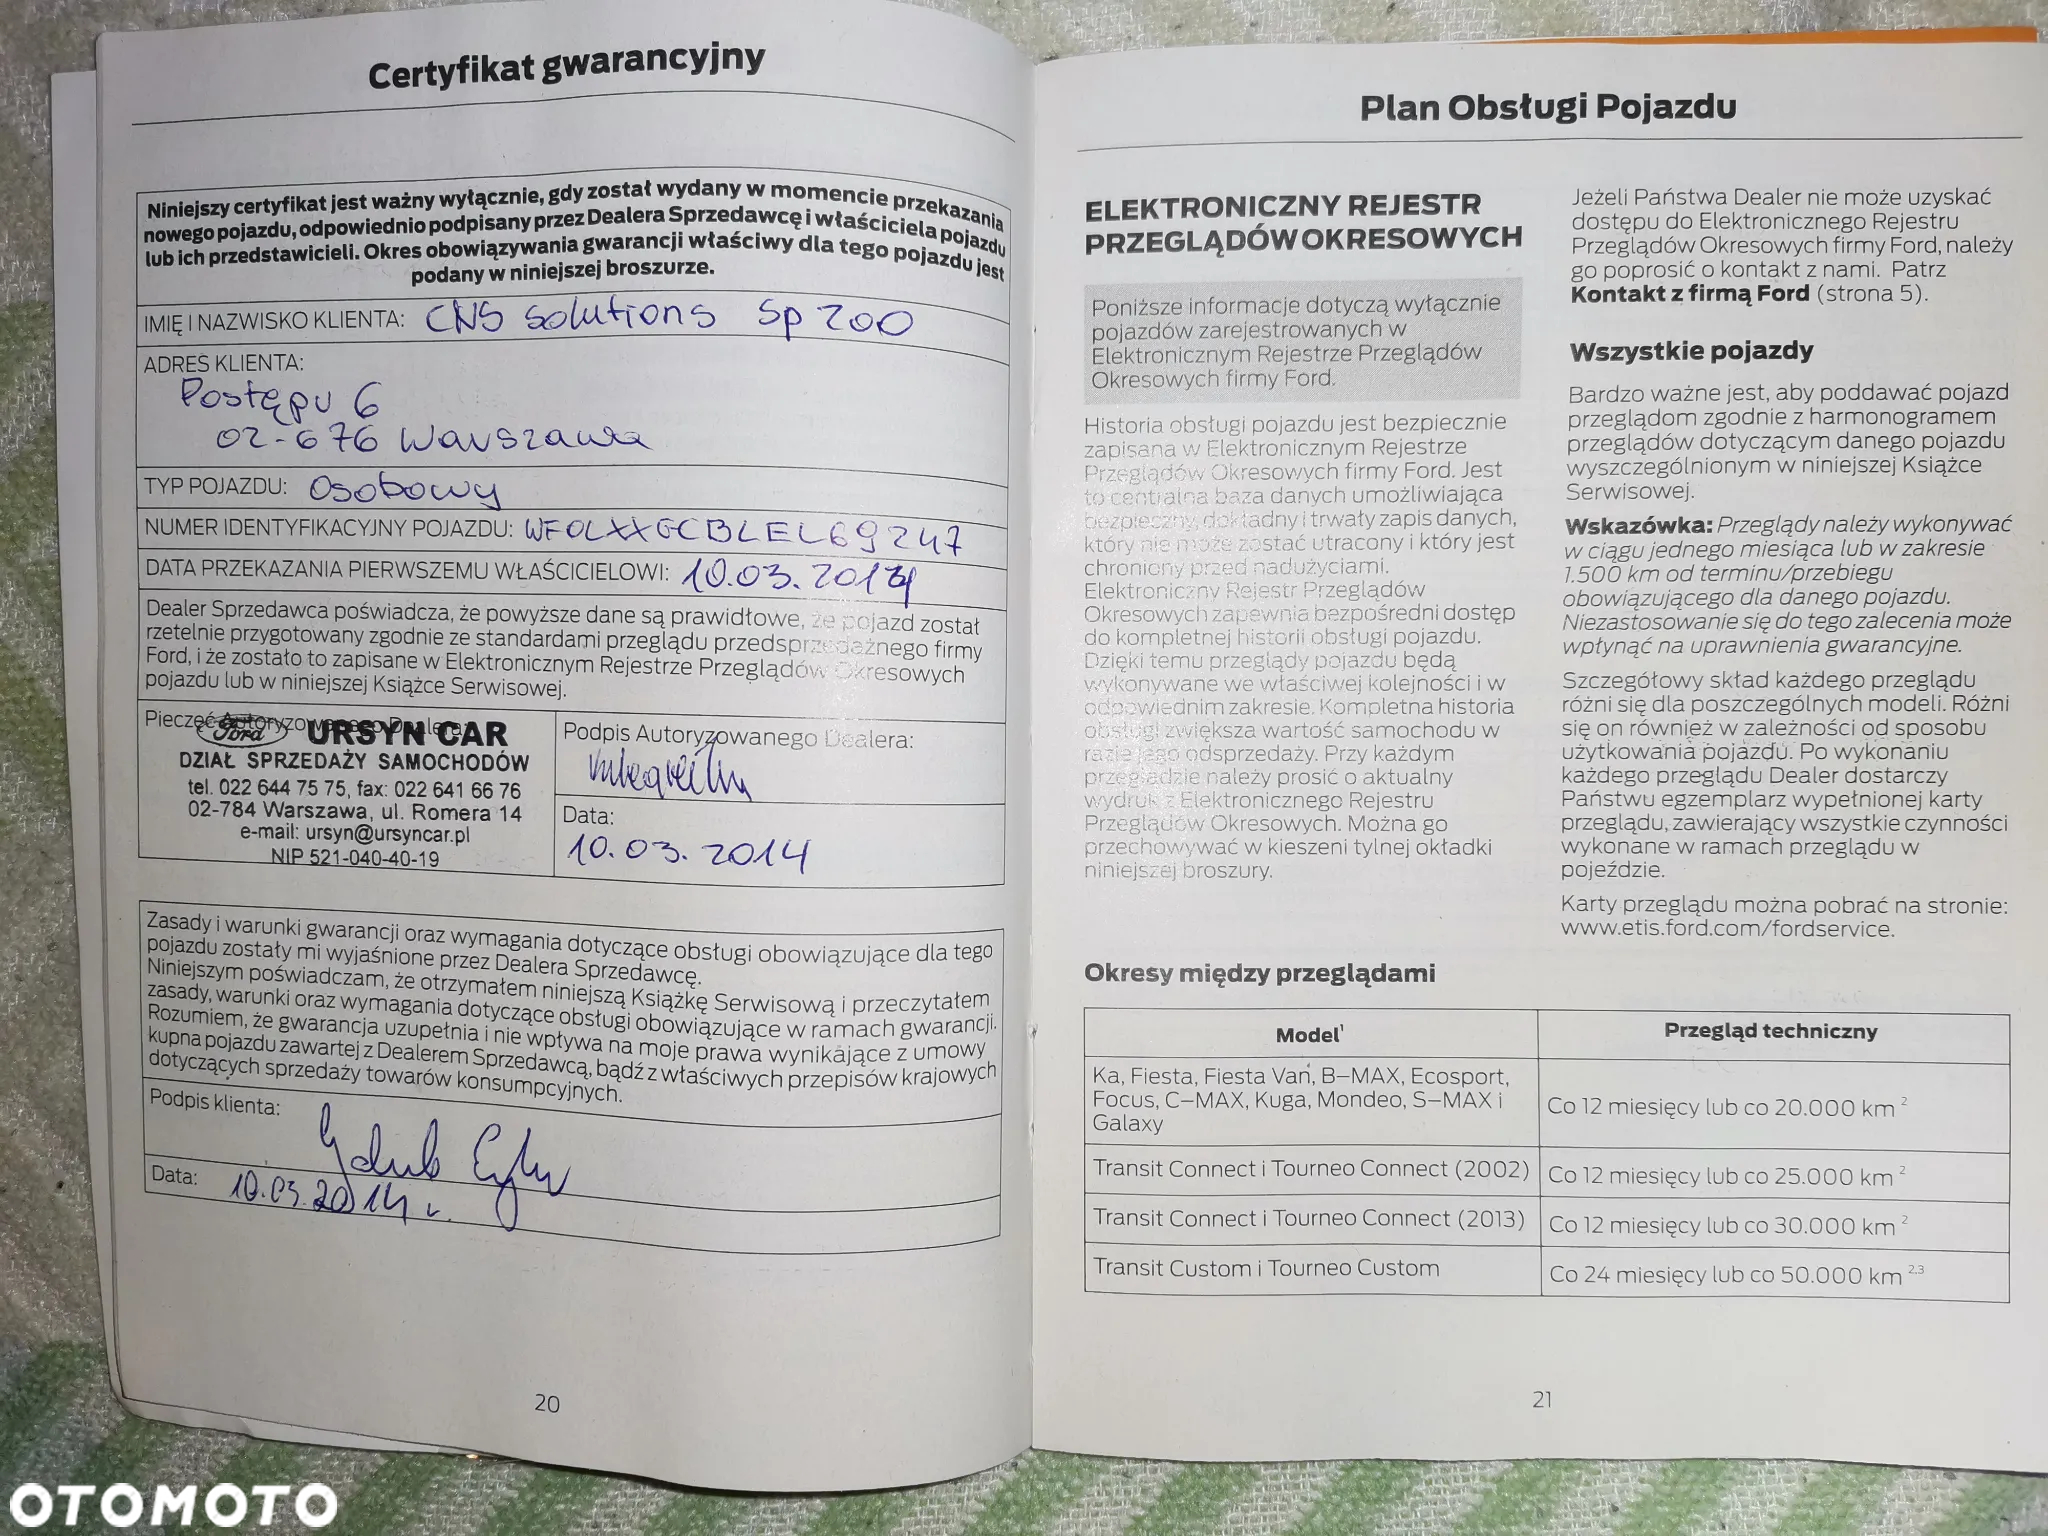 Certyfikat gwarancyjny
Niniejszy certyfikat jest ważny wyłącznie, gdy został wydany w momencie przekazania
nowego pojazdu, odpowiednio podpisany przez Dealera Sprzedawcę i właściciela pojazdu
lub ich przedstawicieli. Okres obowiązywania gwarancji właściwy dla tego pojazdu jest
podany w niniejszej broszurze.
IMIĘ I NAZWISKO KLIENTA: CNS Solutions Sp ZOO
ADRES KLIENTA:
Postępu 6
02-676 Warszawa
TYP POJAZDU: Osobowy
NUMER IDENTYFIKACYJNY POJAZDU: WF0LXXGCBLEL69247
DATA PRZEKAZANIA PIERWSZEMU WŁAŚCICIELOWI: 10.03.2014
Dealer Sprzedawca poświadcza, że powyższe dane są prawidłowe, że pojazd został
rzetelnie przygotowany zgodnie ze standardami przeglądu przedsprzedażnego firmy
Ford, i że zostało to zapisane w Elektronicznym Rejestrze Przeglądów Okresowych
pojazdu lub w niniejszej Książce Serwisowej.
Pieczęć Autoryzowanego Dealera:
Ford URSYN CAR
DZIAŁ SPRZEDAŻY SAMOCHODÓW
tel. 022 644 75 75, fax: 022 641 66 76
02-784 Warszawa, ul. Romera 14
e-mail: ursyn@ursyncar.pl
NIP 521-040-40-19
Podpis Autoryzowanego Dealera:
Data:
10.03.2014
Zasady i warunki gwarancji oraz wymagania dotyczące obsługi obowiązujące dla tego
pojazdu zostały mi wyjaśnione przez Dealera Sprzedawcę.
Niniejszym poświadczam, że otrzymałem niniejszą Książkę Serwisową i przeczytałem
zasady, warunki oraz wymagania dotyczące obsługi obowiązujące w ramach gwarancji.
Rozumiem, że gwarancja uzupełnia i nie wpływa na moje prawa wynikające z umowy
kupna pojazdu zawartej z Dealerem Sprzedawcą, bądź z właściwych przepisów krajowych
dotyczących sprzedaży towarów konsumpcyjnych.
Podpis klienta:
Data: 10.03.2014 r.
20
Plan Obsługi Pojazdu
ELEKTRONICZNY REJESTR
PRZEGLĄDÓW OKRESOWYCH
Poniższe informacje dotyczą wyłącznie
pojazdów zarejestrowanych w
Elektronicznym Rejestrze Przeglądów
Okresowych firmy Ford.
Historia obsługi pojazdu jest bezpiecznie
zapisana w Elektronicznym Rejestrze
Przeglądów Okresowych firmy Ford. Jest
to centralna baza danych umożliwiająca
bezpieczny, dokładny i trwały zapis danych,
który nie może zostać utracony i który jest
chroniony przed nadużyciami.
Elektroniczny Rejestr Przeglądów
Okresowych zapewnia bezpośredni dostęp
do kompletnej historii obsługi pojazdu.
Dzięki temu przeglądy pojazdu będą
wykonywane we właściwej kolejności i w
odpowiednim zakresie. Kompletna historia
obsługi zwiększa wartość samochodu w
razie jego odsprzedaży. Przy każdym
przeglądzie należy prosić o aktualny
wydruk z Elektronicznego Rejestru
Przeglądów Okresowych. Można go
przechowywać w kieszeni tylnej okładki
niniejszej broszury.
Jeżeli Państwa Dealer nie może uzyskać
dostępu do Elektronicznego Rejestru
Przeglądów Okresowych firmy Ford, należy
go poprosić o kontakt z nami. Patrz
Kontakt z firmą Ford (strona 5).
Wszystkie pojazdy
Bardzo ważne jest, aby poddawać pojazd
przeglądom zgodnie z harmonogramem
przeglądów dotyczącym danego pojazdu
wyszczególnionym w niniejszej Książce
Serwisowej.
Wskazówka: Przeglądy należy wykonywać
w ciągu jednego miesiąca lub w zakresie
1.500 km od terminu/przebiegu
obowiązującego dla danego pojazdu.
Niezastosowanie się do tego zalecenia może
wpłynąć na uprawnienia gwarancyjne.
Szczegółowy skład każdego przeglądu
różni się dla poszczególnych modeli. Różni
się on również w zależności od sposobu
użytkowania pojazdu. Po wykonaniu
każdego przeglądu Dealer dostarczy
Państwu egzemplarz wypełnionej karty
przeglądu, zawierający wszystkie czynności
wykonane w ramach przeglądu w
pojeździe.
Karty przeglądu można pobrać na stronie:
www.etis.ford.com/fordservice.
Okresy między przeglądami
Model¹ Przegląd techniczny
Ka, Fiesta, Fiesta Van, B–MAX, Ecosport,
Focus, C–MAX, Kuga, Mondeo, S–MAX i
Galaxy
Co 12 miesięcy lub co 20.000 km ²
Transit Connect i Tourneo Connect (2002) Co 12 miesięcy lub co 25.000 km ²
Transit Connect i Tourneo Connect (2013) Co 12 miesięcy lub co 30.000 km ²
Transit Custom i Tourneo Custom Co 24 miesięcy lub co 50.000 km ²·³
21
OTOMOTO